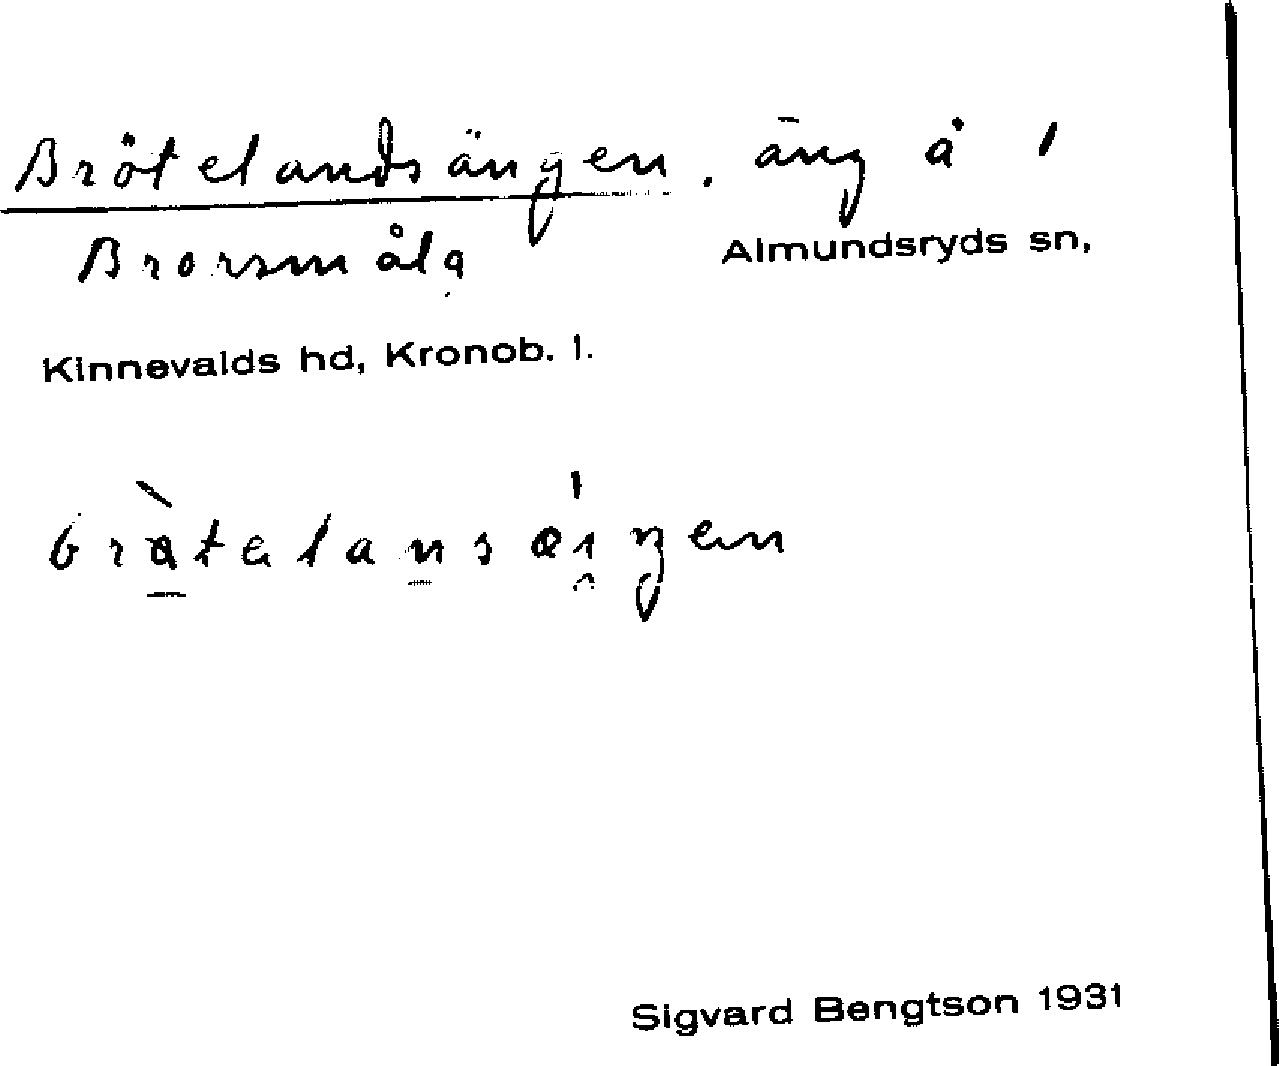 Brötelandsängen, äng å 1
Brorsmåla Almundsryds sn,
Kinnevalds hd, Kronob. l.
Sigvard Bengtson 1931